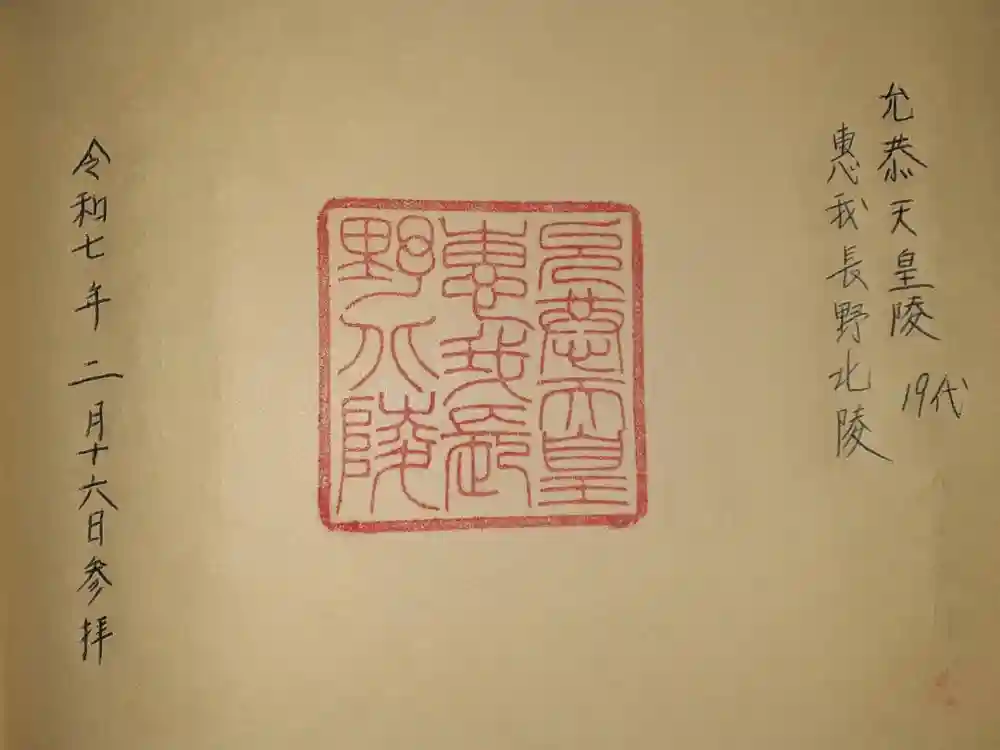 允恭天皇陵 19代
惠我長野北陵
允恭天皇
惠我長
野北陵
令和七年二月十六日参拝